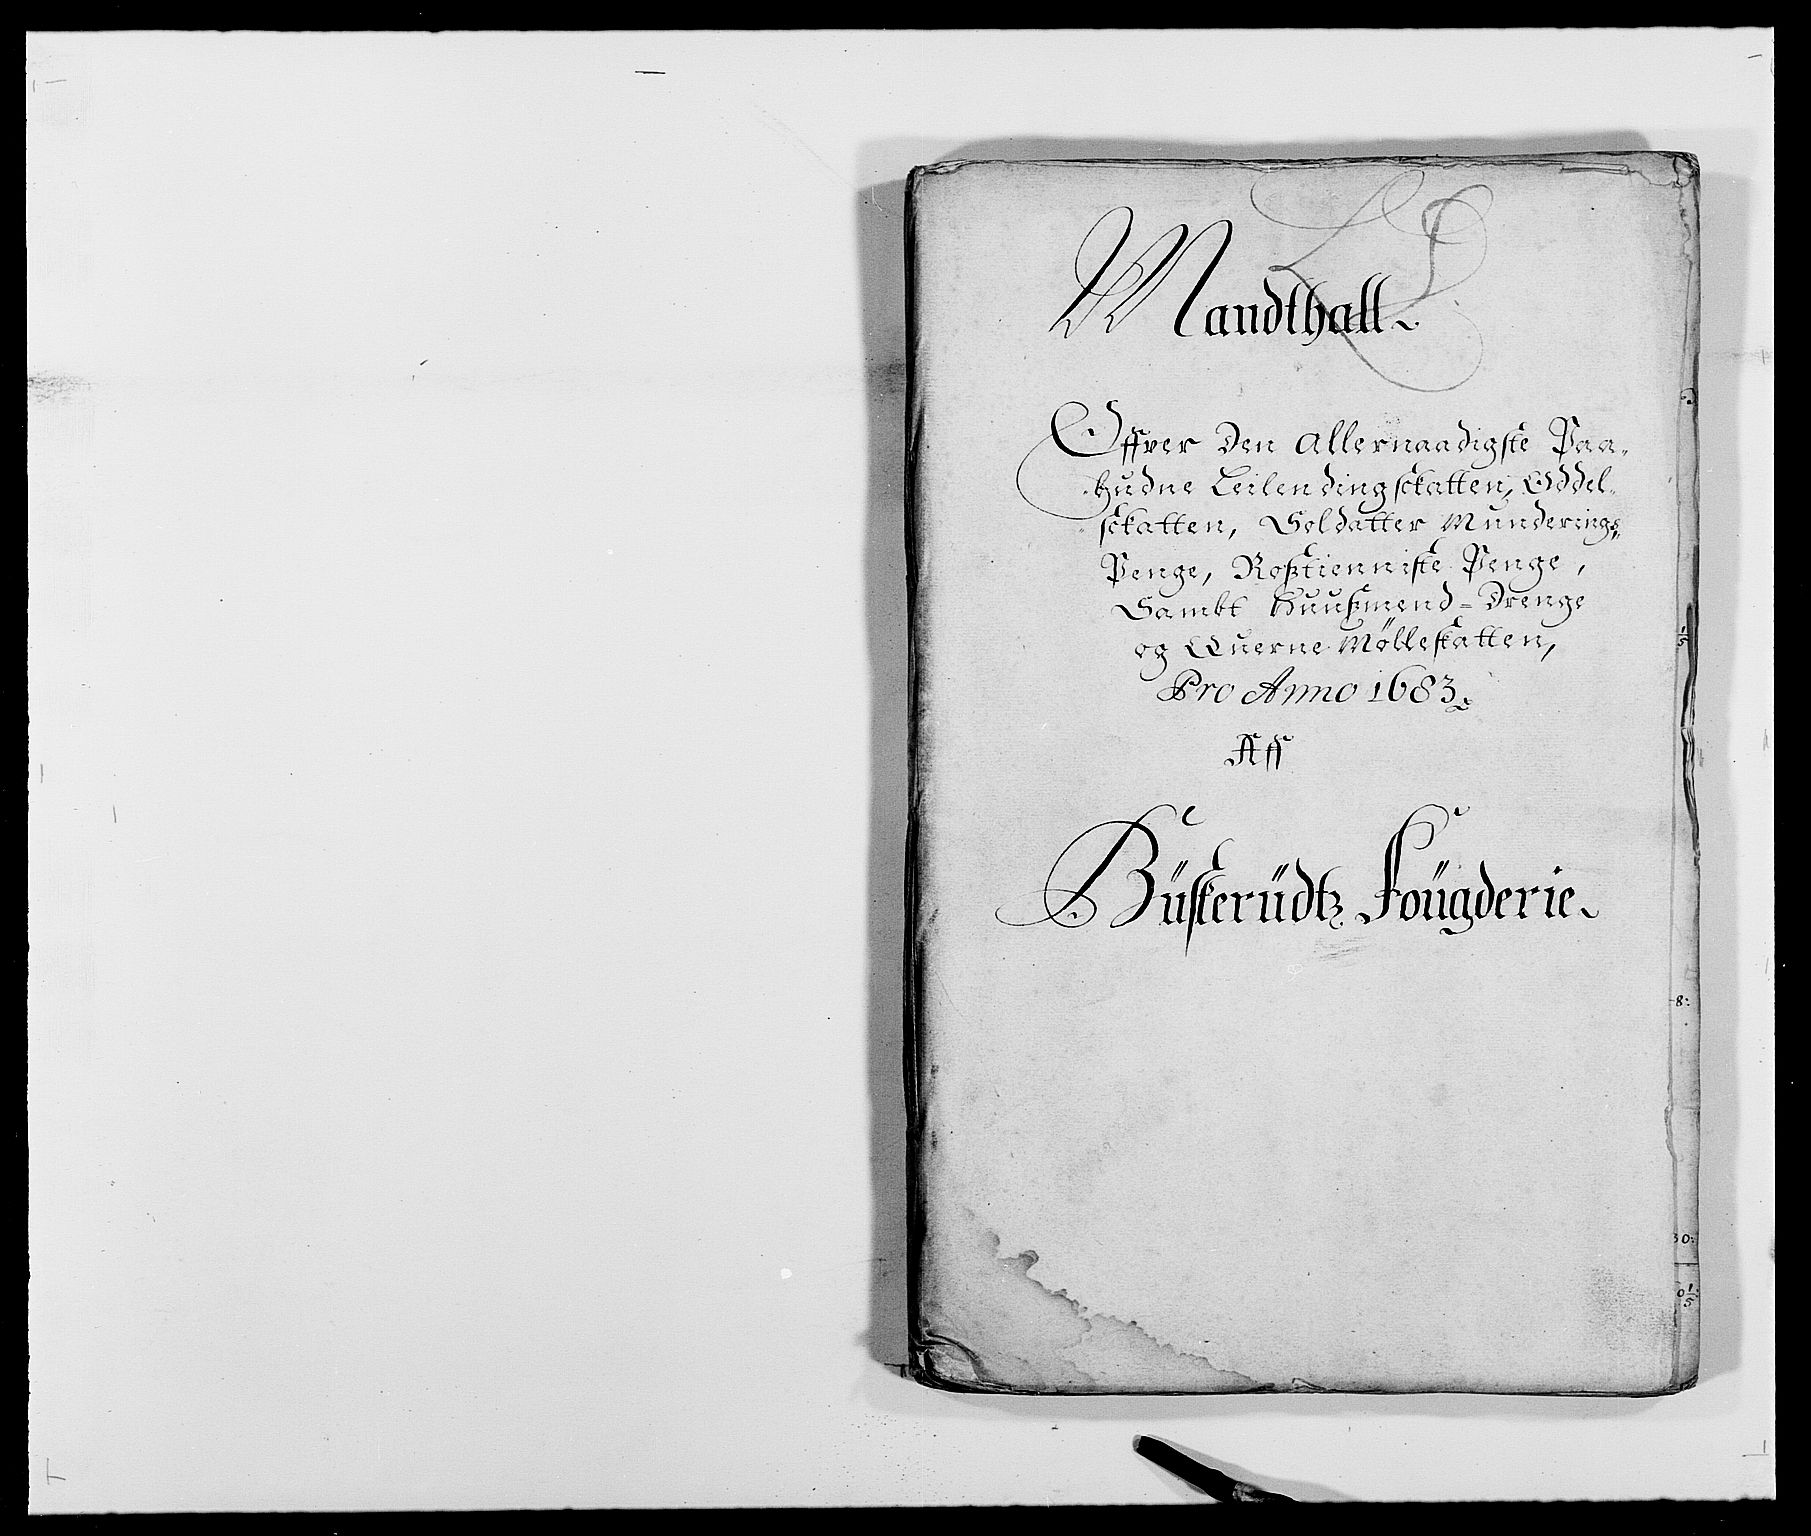 Mandthall.
Offver den allernaadigste Paa-
budne Leilendingsckatten, Oddel-
sckatten, Soldatter Munderings
Penge, Roßtienniste Penge,
Sambt Huußmend-Drenge
og Querne Mølleskatten,
Pro Anno 1683.
Aff
Büskerüdtz Foügderie.